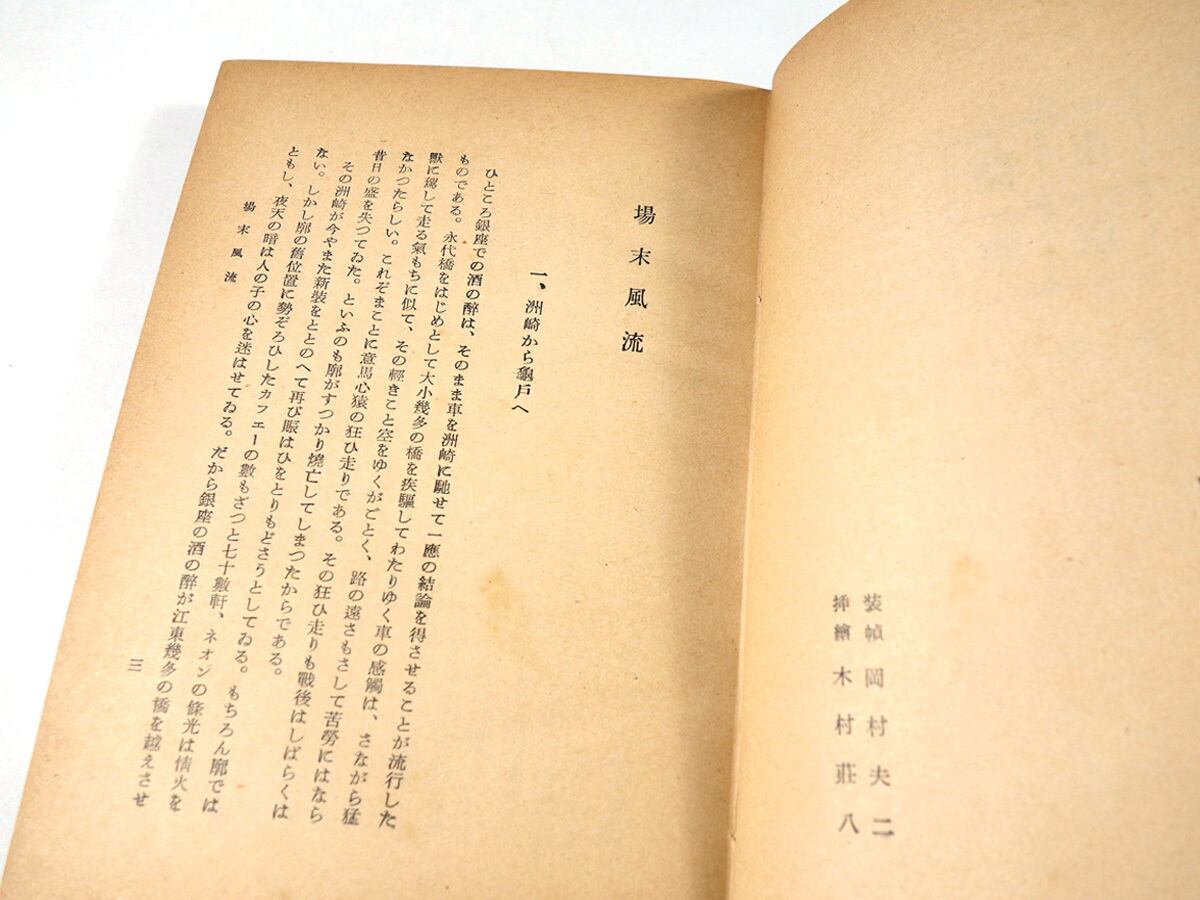 装幀 岡村夫二
挿繪 木村莊八
場末風流
一、洲崎から龜戸へ
ひところ銀座での酒の醉は、そのまま車を洲崎に馳せて一應の結論を得させることが流行した
ものである。永代橋をはじめとして大小幾多の橋を疾驅してわたりゆく車の感觸は、さながら猛
獸に駕して走る氣もちに似て、その輕きこと空をゆくがごとく、路の遠さもさして苦勞にはなら
なかつたらしい。これぞまことに意馬心猿の狂ひ走りである。その狂ひ走りも戰後はしばらくは
昔日の盛を失つてゐた。といふのも廓がすつかり燒亡してしまつたからである。
その洲崎が今やまた新裝をととのへて再び賑はひをとりもどさうとしてゐる。もちろん廓では
ない。しかし廓の舊位置に勢ぞろひしたカフェーの數もざつと七十數軒、ネオンの條光は情火を
ともし、夜天の暗は人の子の心を迷はせてゐる。だから銀座の酒の醉が江東幾多の橋を越えさせ
場末風流
三